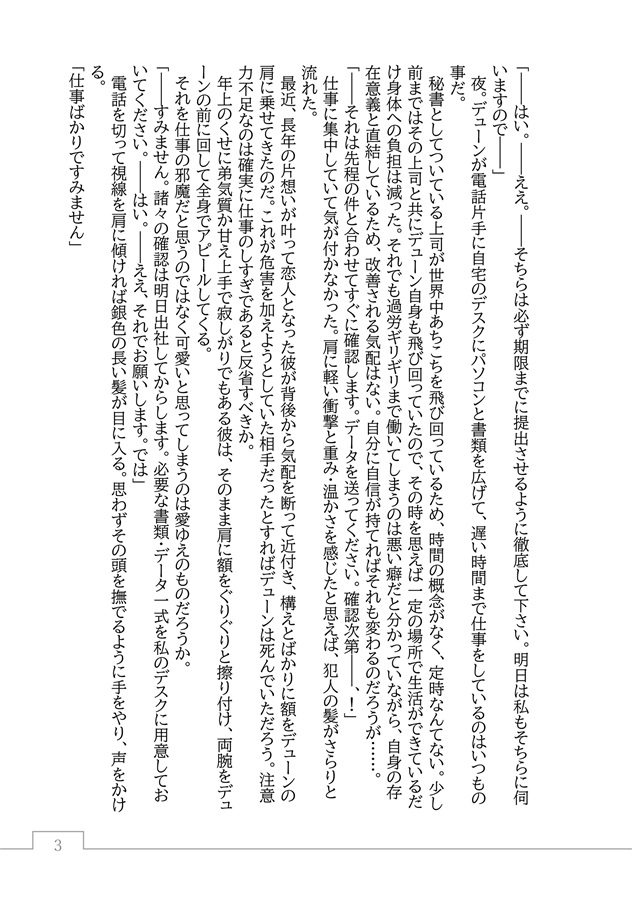 「――はい。――ええ。――そちらは必ず期限までに提出させるように徹底して下さい。明日は私もそちらに伺
いますので――」
　夜。デューンが電話片手に自宅のデスクにパソコンと書類を広げて、遅い時間まで仕事をしているのはいつもの
事だ。
　秘書としてついている上司が世界中あちこちを飛び回っているため、時間の概念がなく、定時なんてない。少し
前まではその上司と共にデューン自身も飛び回っていたので、その時を思えば一定の場所で生活ができているだ
け身体への負担は減った。それでも過労ギリギリまで働いてしまうのは悪い癖だと分かっていながら、自身の存
在意義と直結しているため、改善される気配はない。自分に自信が持てればそれも変わるのだろうが……。
「――それは先程の件と合わせてすぐに確認します。データを送ってください。確認次第――、！」
　仕事に集中していて気が付かなかった。肩に軽い衝撃と重み・温かさを感じたと思えば、犯人の髪がさらりと
流れた。
　最近、長年の片想いが叶って恋人となった彼が背後から気配を断って近付き、構えとばかりに額をデューンの
肩に乗せてきたのだ。これが危害を加えようとしていた相手だったとすればデューンは死んでいただろう。注意
力不足なのは確実に仕事のしすぎであると反省すべきか。
　年上のくせに弟気質か甘え上手で寂しがりでもある彼は、そのまま肩に額をぐりぐりと擦り付け、両腕をデュ
ーンの前に回して全身でアピールしてくる。
　それを仕事の邪魔だと思うのではなく可愛いと思ってしまうのは愛ゆえのものだろうか。
「――すみません。諸々の確認は明日出社してからします。必要な書類・データ一式を私のデスクに用意してお
いてください。――はい。――ええ、それでお願いします。では」
　電話を切って視線を肩に傾ければ銀色の長い髪が目に入る。思わずその頭を撫でるように手をやり、声をかけ
る。
「仕事ばかりですみません」
3